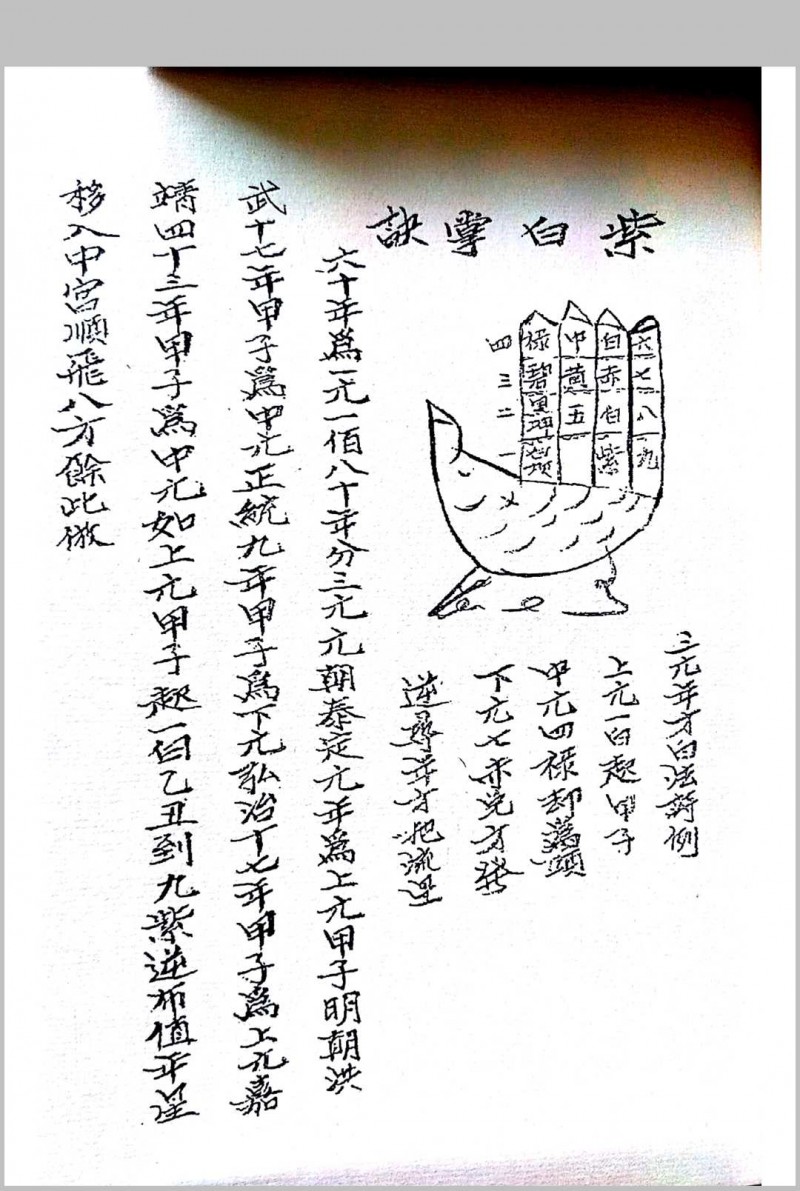 紫白掌訣
六七八九
白赤白紫
中黄五
禄碧
四三二一
三元年方白法詩例
上元一白起甲子
中元四禄却為頭
下元七赤兌方發
逆尋年方把流星
六十年為一元一佰八十年分三元元朝泰定元年為上元甲子明朝洪
武十七年甲子為中元正統九年甲子為下元弘治十七年甲子為上元嘉
靖四十三年甲子為中元如上元甲子起一白乙丑到九紫逆布值年星
移入中宮順飛八方餘此倣